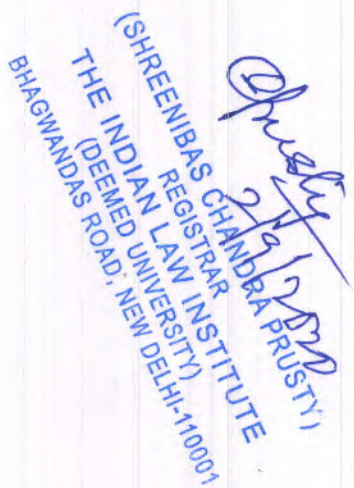 2/9/2020
(SHREENIBAS CHANDRA PRUSTY)
REGISTRAR
THE INDIAN LAW INSTITUTE
(DEEMED UNIVERSITY)
BHAGWANDAS ROAD, NEW DELHI-110001